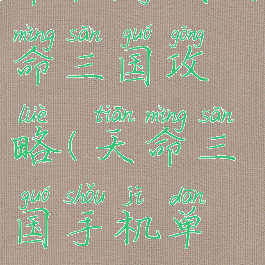 mìng sān guó gōng
命三国攻
lüè tiān mìng sān
略(天命三
guó shǒu jī dān
国手机单